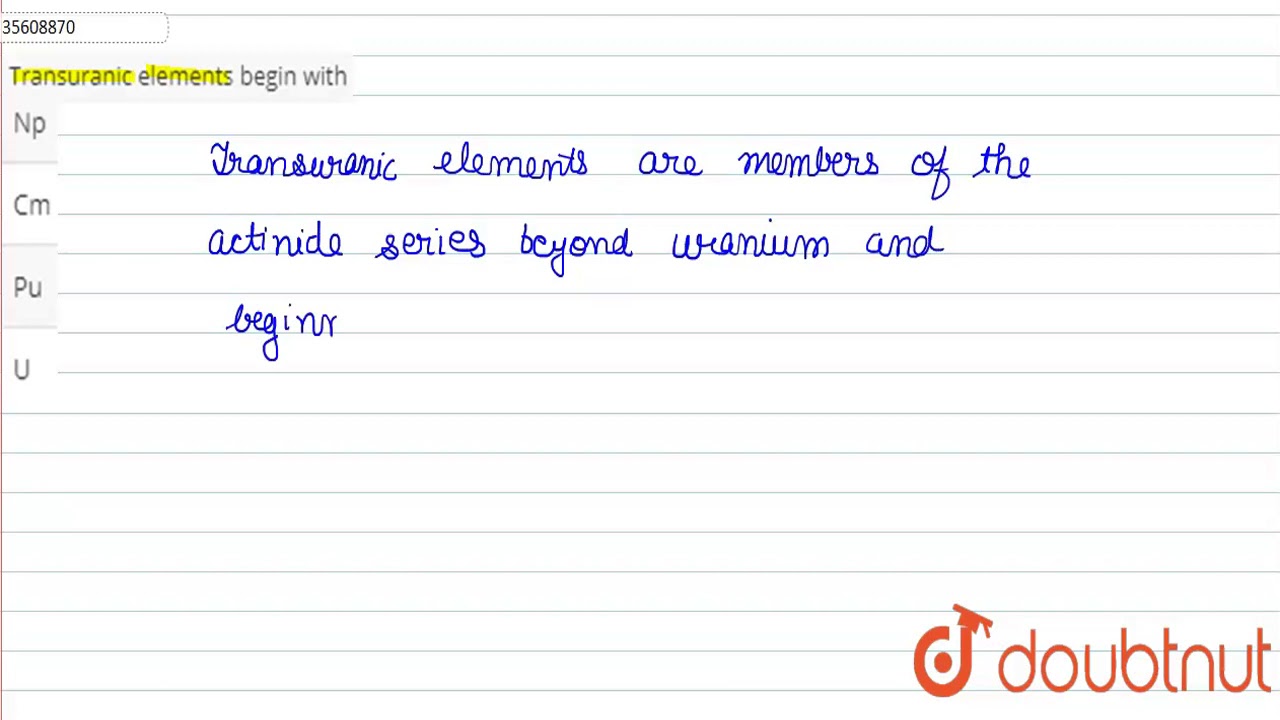 35608870
Transuranic elements begin with
Np
Transuranic elements are members of the
Cm
actinide series beyond uranium and
Pu
beginn
U
doubtnut